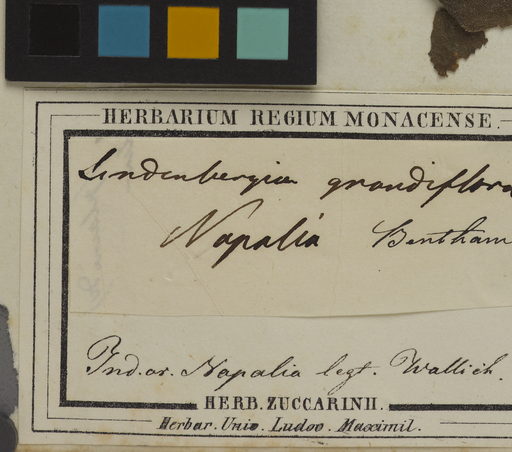 HERBARIUM REGIUM MONACENSE.
Lindenbergia grandiflora
Napalia Bentham
Ind. or. Napalia legt. Wallich.
HERB. ZUCCARINII.
Herbar. Univ. Ludov. Maximil.